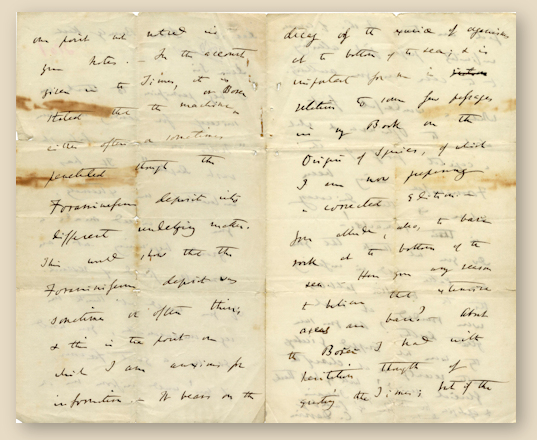 one point not noticed in
your Notes. — In the account
given in the Times, it is
stated that the machine
either often or sometimes
penetrated through the
Foraminiferous deposit into
different underlying matter.
This would show that the
Foraminiferous deposit was
sometimes or often thin;
& this is the point on
which I am anxious for
information. — It bears on the
decay of the of organisms
at the bottom of the sea; & is
important for me in
relation to some few passages
in my Book on the
Origin of Species, of which
I am now preparing
a corrected Edition. —
You allude, also, to bare
rock at the bottom of the
sea. Have you any reason
to believe that extensive
areas are bare? About
the Borer I had with
hesitation thought of
quoting the Times; but if the